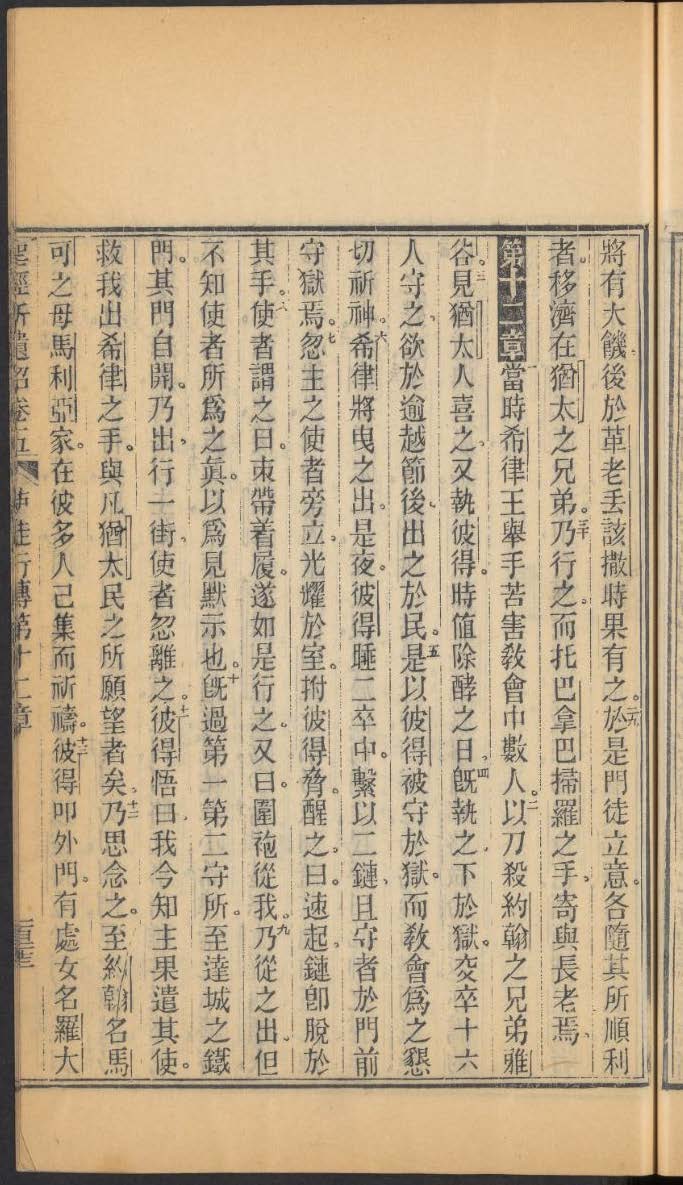 將有大饑、後於革老丟該撒時果有之。𠦃於是門徒立意、各隨其所順利
者、移濟在猶太之兄弟。三十乃行之、而托巴拿巴掃羅之手、寄與長老焉、
第十二章一當時希律王舉手苦害敎會中數人。二以刀殺約翰之兄弟雅
谷。三見猶太人喜之、又執彼得。時值除酵之日、四旣執之、下於獄。交卒十六
人守之、欲於逾越節後、出之於民。五是以彼得被守於獄。而敎會爲之懇
切祈神。六希律將曳之出、是夜。彼得睡二卒中。繫以二鏈、且守者於門前
守獄焉。七忽主之使者旁立、光耀於室。拊彼得脅。醒之。曰、速起、鏈卽脫於
其手。八使者謂之曰、束帶着履。遂如是行之。又曰。圍袍從我。九乃從之出、但
不知使者所爲之眞。以爲見默示也。十旣過第一第二守所。至達城之鐵
門。其門自開。乃出、行一街、使者忽離之。十一彼得悟曰、我今知主果遣其使。
救我出希律之手。與凡猶太民之所願望者矣。十二乃思念之。至約翰名馬
可之母馬利亞家。在彼多人已集而祈禱。十三彼得叩外門。有處女名羅大
聖經新遺詔卷五 使徒行傳第十二章